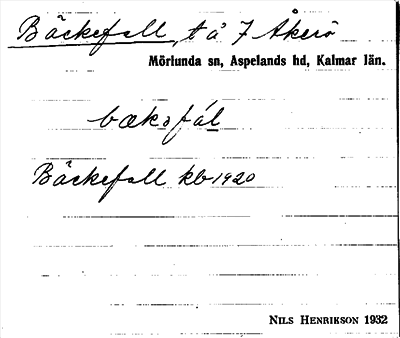 Bäckefall, t å 7 Åkerö
Mörlunda sn, Aspelands hd, Kalmar län.
bækəfál
Bäckefall kb 1920
NILS HENRIKSON 1932